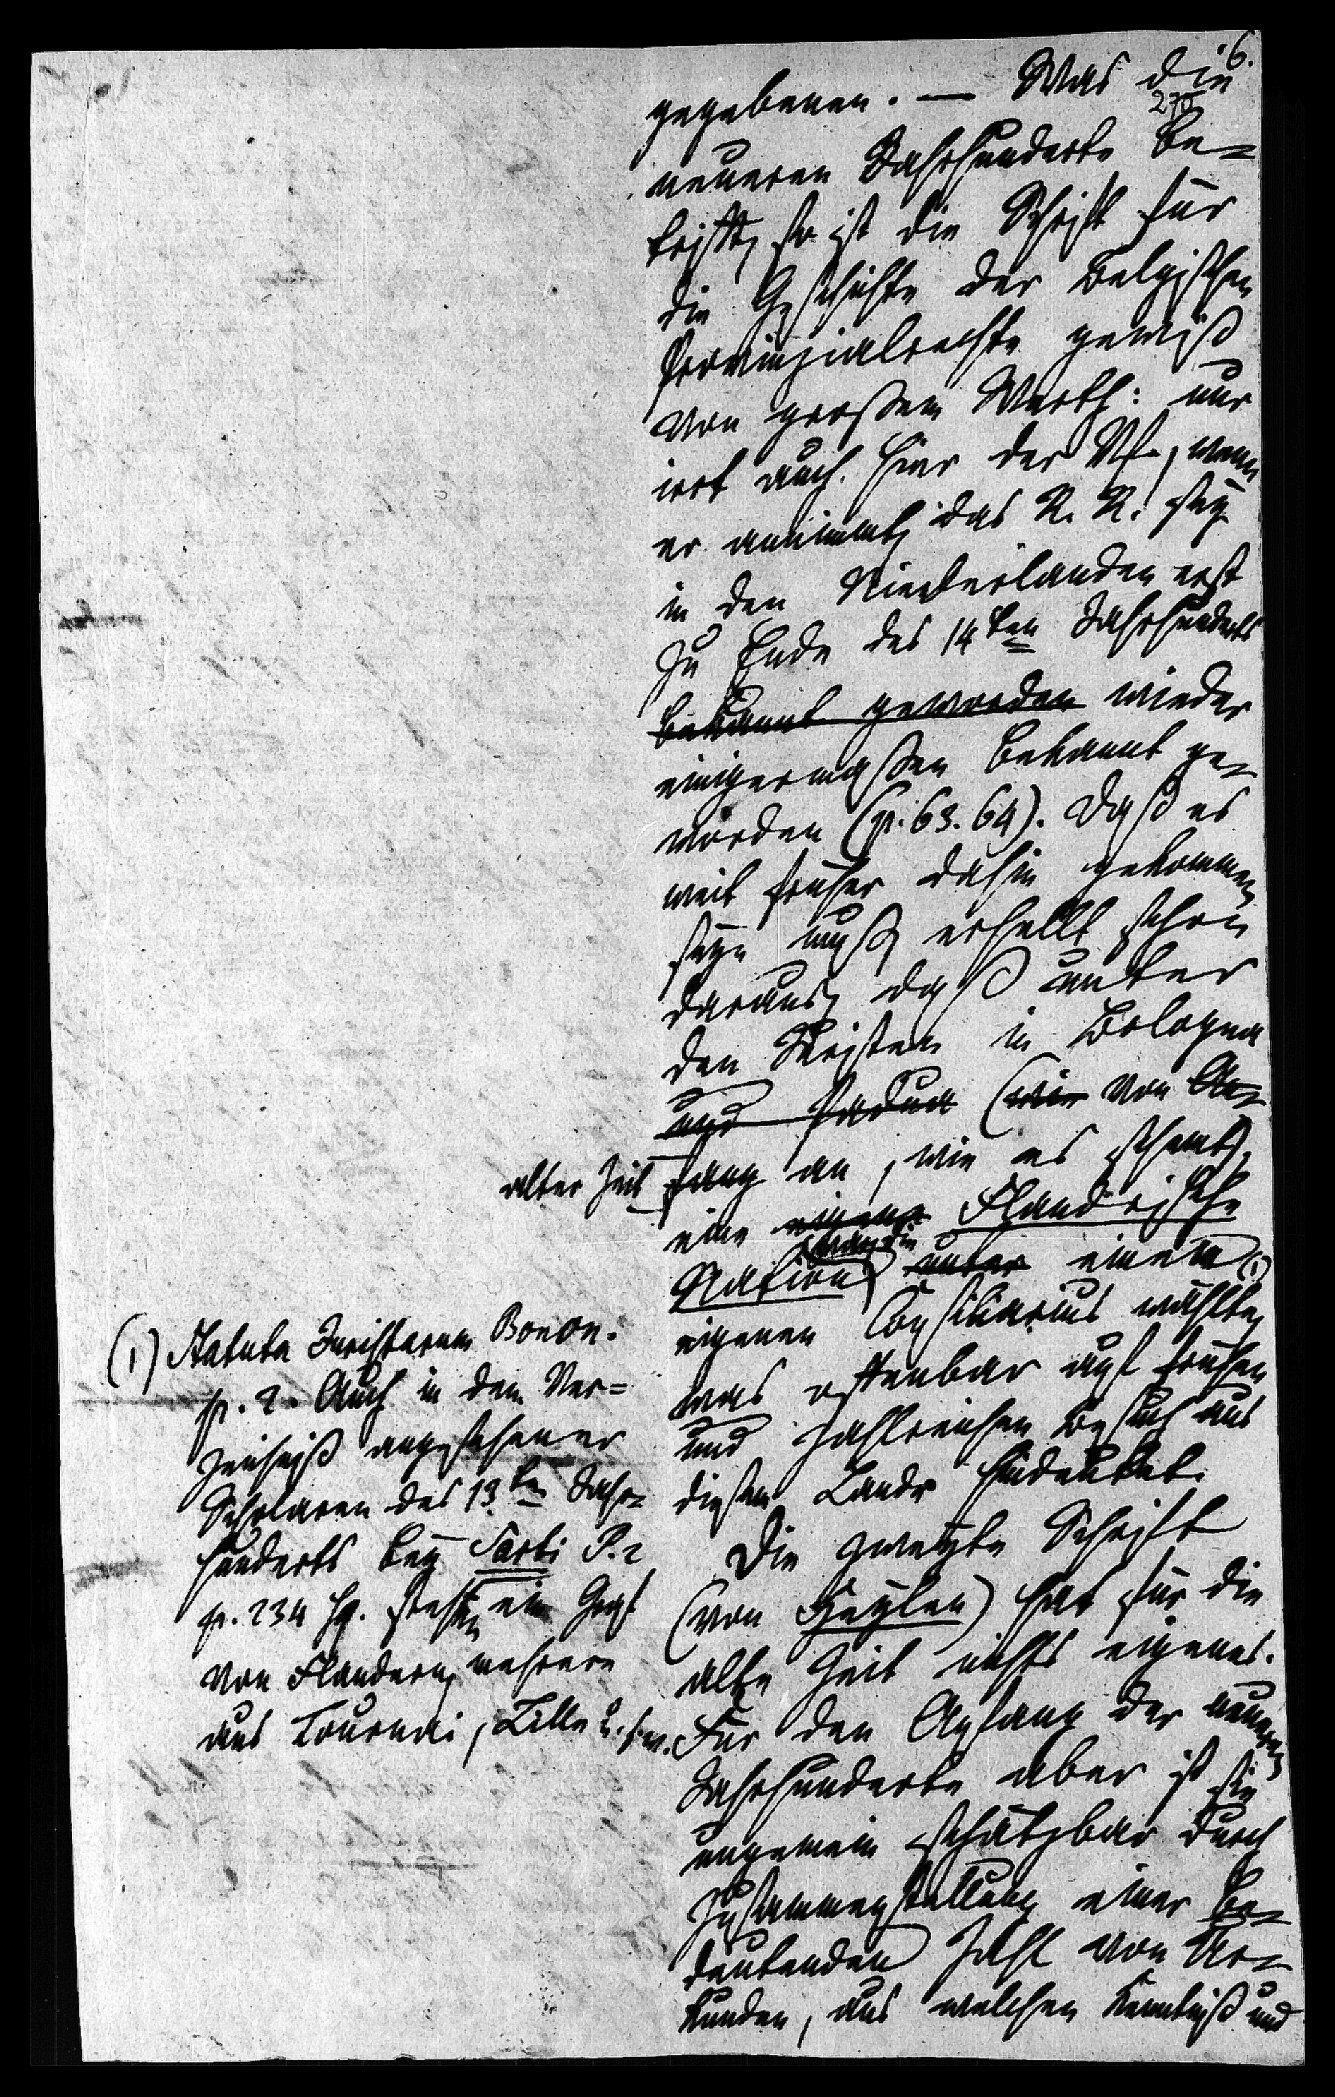 6.
270
gegebenen. — Was die
neueren Jahrhunderte be-
trifft, so ist die Schrift für
die Geschichte der Belgischen
Provinzialrechte gewiß
von großem Werth: nur
irrt auch hier der Vf., wenn
er annimmt, das R. R. sey
in den Niederlanden erst
zu Ende des 14ten Jahrhunderts
bekannt geworden wieder
einigermaßen bekannt ge-
worden (p. 63. 64). Daß es
weit früher dahin gekommen
seyn muß, erhellt schon
daraus, daß unter
den Juristen in Bologna
und Padua (wie von An-
alter Zeit
fang an, wie es scheint,
eine eigene Flandrische
Nation unter einem
eigenen Consiliarius wählte, (1)
was offenbar auf frühen
und zahlreichen Besuch aus
diesem Lande hindeutet.
Die zweyte Schrift
(von Heylen) hat für die
alte Zeit nichts eigenes.
Für den Anfang der neueren
Jahrhunderte aber ist sie
ungemein schätzbar durch
Zusammenstellung einer be-
deutenden Zahl von Ur-
kunden, aus welchen Kenntniß und
(1) Statuta Juristarum Bonon.
p. 2. Auch in dem Ver=
zeichniß angesehener
Scholaren des 13ten Jahr-
hunderts bey Sarti P. 2
p. 234 sq. stehen ein Graf
von Flandern, mehrere
aus Tournai, Lille u. s. w.